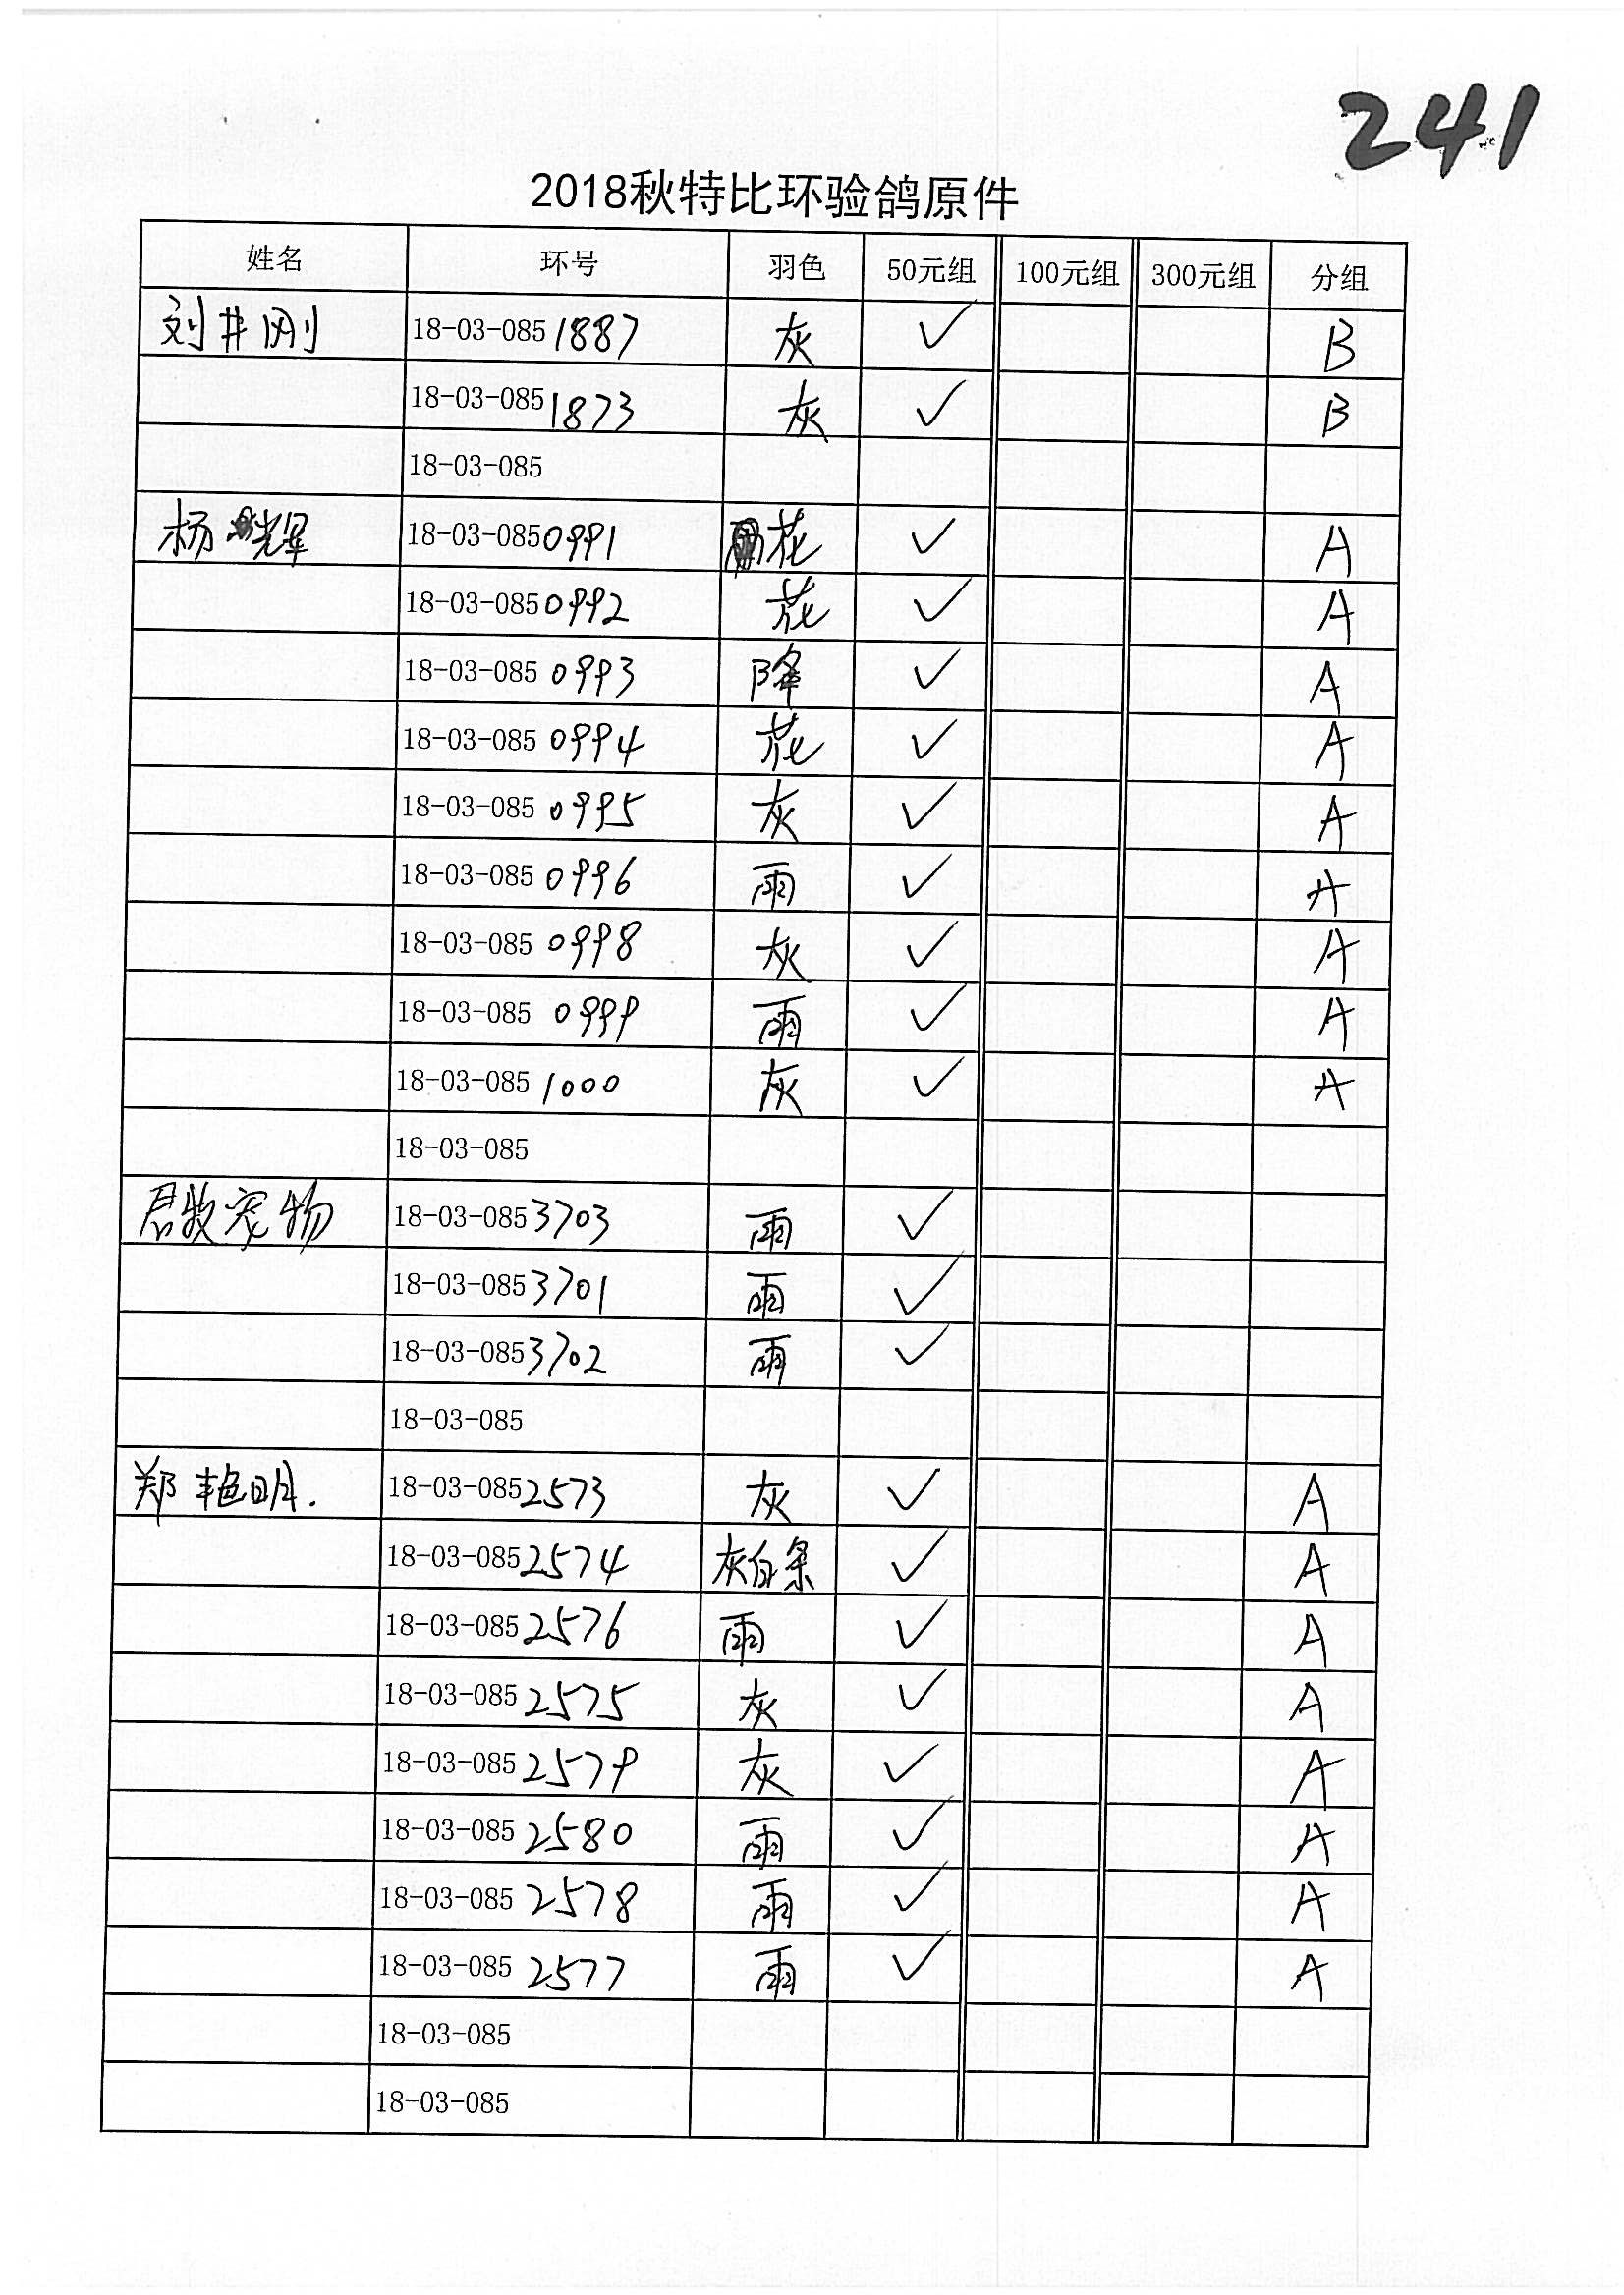 241
2018秋特比环验鸽原件
姓名 环号 羽色 50元组 100元组 300元组 分组
刘井刚 18-03-085 1887 灰 ✓ B
18-03-085 1873 灰 ✓ B
18-03-085
杨耀 18-03-085 0991 花 ✓ A
18-03-085 0992 花 ✓ A
18-03-085 0993 降 ✓ A
18-03-085 0994 花 ✓ A
18-03-085 0995 灰 ✓ A
18-03-085 0996 雨 ✓ A
18-03-085 0998 灰 ✓ A
18-03-085 0999 雨 ✓ A
18-03-085 1000 灰 ✓ A
18-03-085
君牧宠物 18-03-085 3703 雨 ✓
18-03-085 3701 雨 ✓
18-03-085 3702 雨 ✓
18-03-085
郑艳明. 18-03-085 2573 灰 ✓ A
18-03-085 2574 灰白条 ✓ A
18-03-085 2576 雨 ✓ A
18-03-085 2575 灰 ✓ A
18-03-085 2579 灰 ✓ A
18-03-085 2580 雨 ✓ A
18-03-085 2578 雨 ✓ A
18-03-085 2577 雨 ✓ A
18-03-085
18-03-085